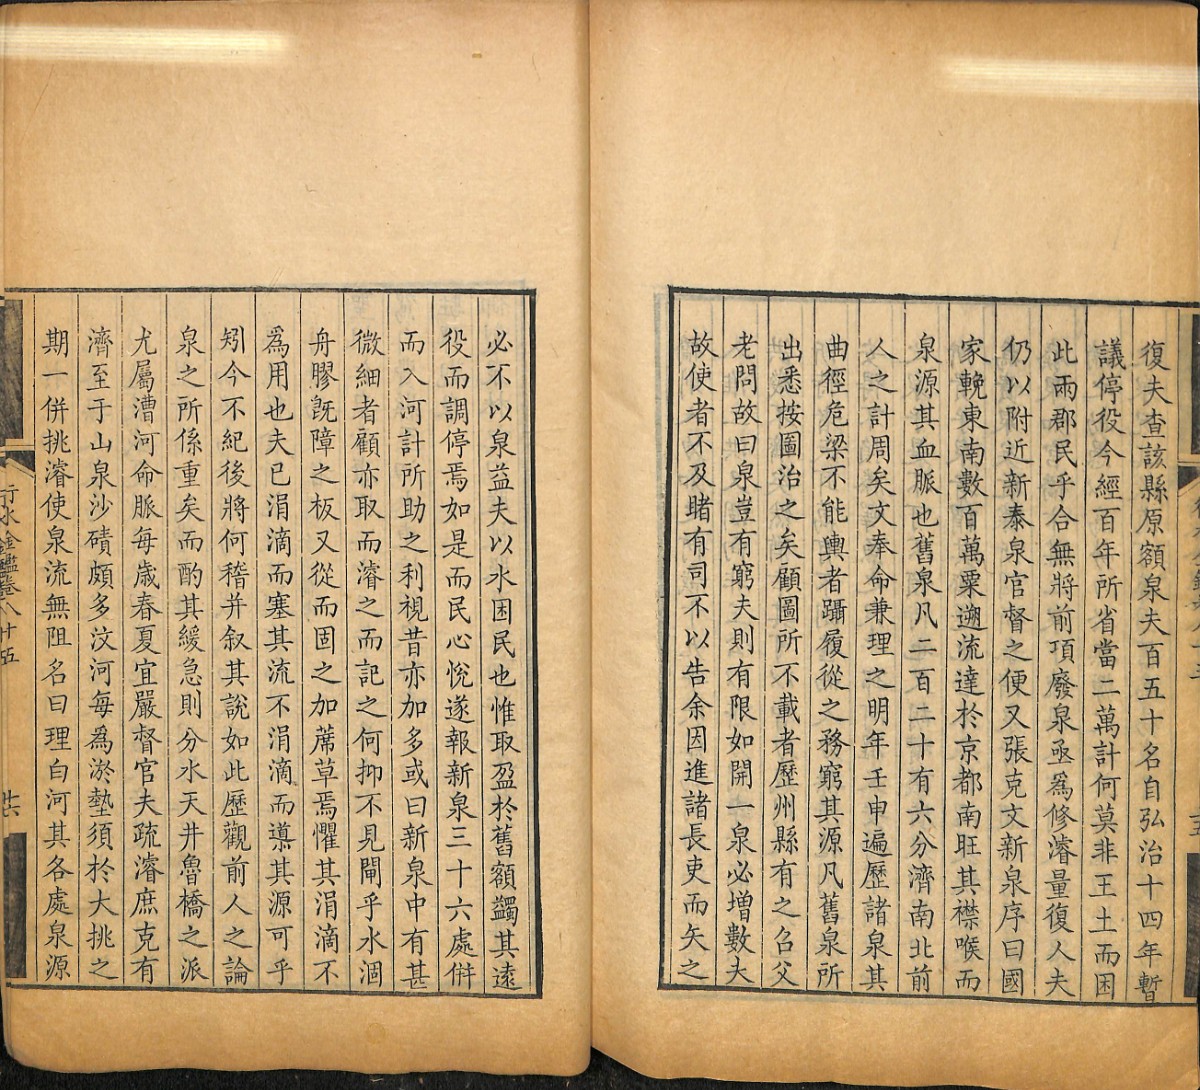 復夫查該縣原額泉夫百五十名自弘治十四年暫
議停役今經百年所省當二萬計何莫非王土而困
此兩郡民乎合無將前項廢泉亟爲修濬量復人夫
仍以附近新泰泉官督之便又張克文新泉序曰國
家輓東南數百萬粟遡流達於京都南旺其襟喉而
泉源其血脈也舊泉凡二百二十有六分濟南北前
人之計周矣文奉命兼理之明年壬申遍歷諸泉其
曲徑危梁不能輿者躡履從之務窮其源凡舊泉所
出悉按圖治之矣顧圖所不載者歷州縣有之召父
老問故曰泉豈有窮夫則有限如開一泉必增數夫
故使者不及睹有司不以告余因進諸長吏而矢之
必不以泉益夫以水困民也惟取盈於舊額蠲其遠
役而調停焉如是而民心悅遂報新泉三十六處倂
而入河計所助之利視昔亦加多或曰新泉中有甚
微細者顧亦取而濬之而記之何抑不見閘乎水涸
舟膠旣障之板又從而固之加蓆草焉懼其涓滴不
爲用也夫已涓滴而塞其流不涓滴而導其源可乎
矧今不紀後將何稽并叙其說如此歷觀前人之論
泉之所係重矣而酌其緩急則分水天井魯橋之派
尤屬漕河命脈每歲春夏宜嚴督官夫疏濬庶克有
濟至于山泉沙磧頗多汶河每為淤墊須於大挑之
期一併挑濬使泉流無阻名曰理白河其各處泉源
行水金鑑卷八十五
廿六